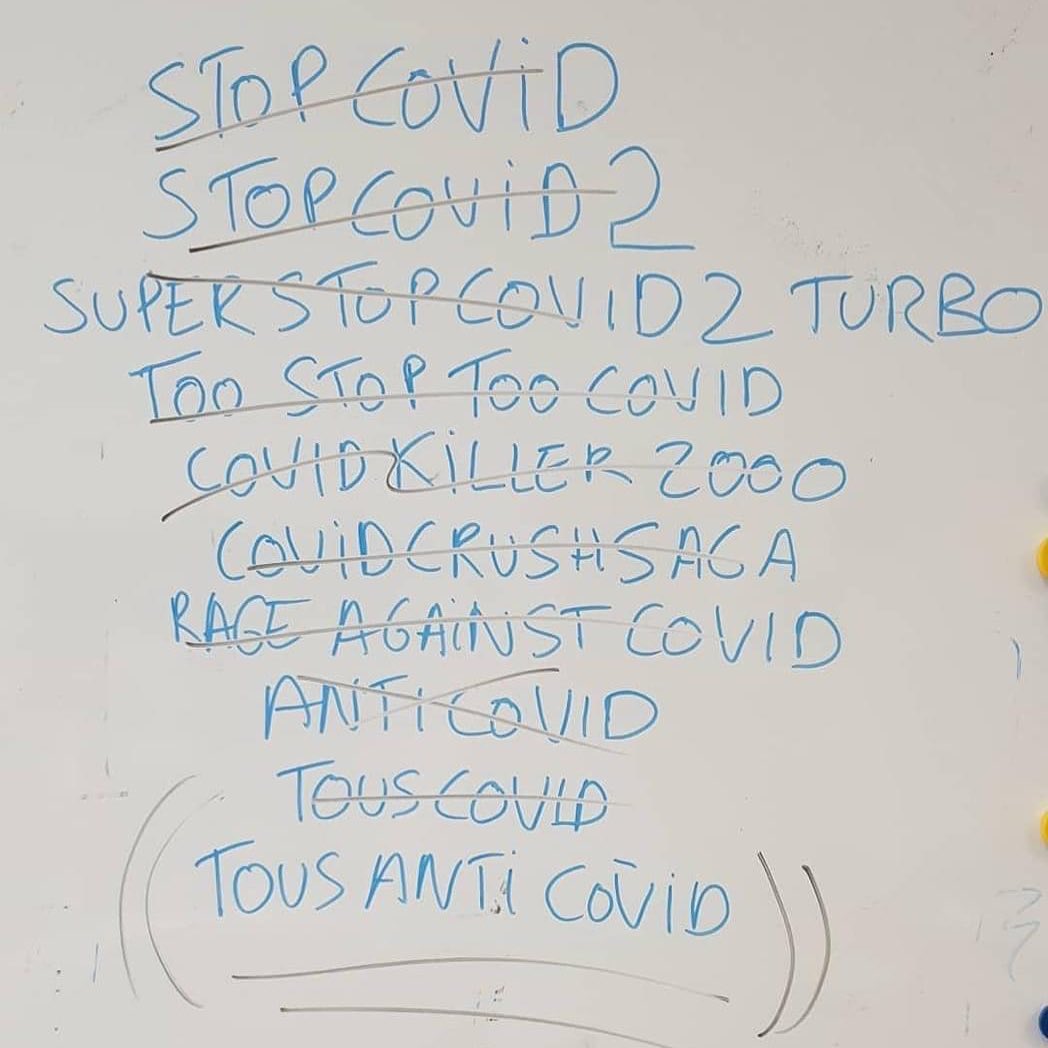 STOPCOVID
STOPCOVID 2
SUPERSTOPCOVID 2 TURBO
TOO STOP TOO COVID
COVIDKILLER 2000
COVIDCRUSHSAGA
RAGE AGAINST COVID
ANTICOVID
TOUSCOVID
TOUS ANTI COVID